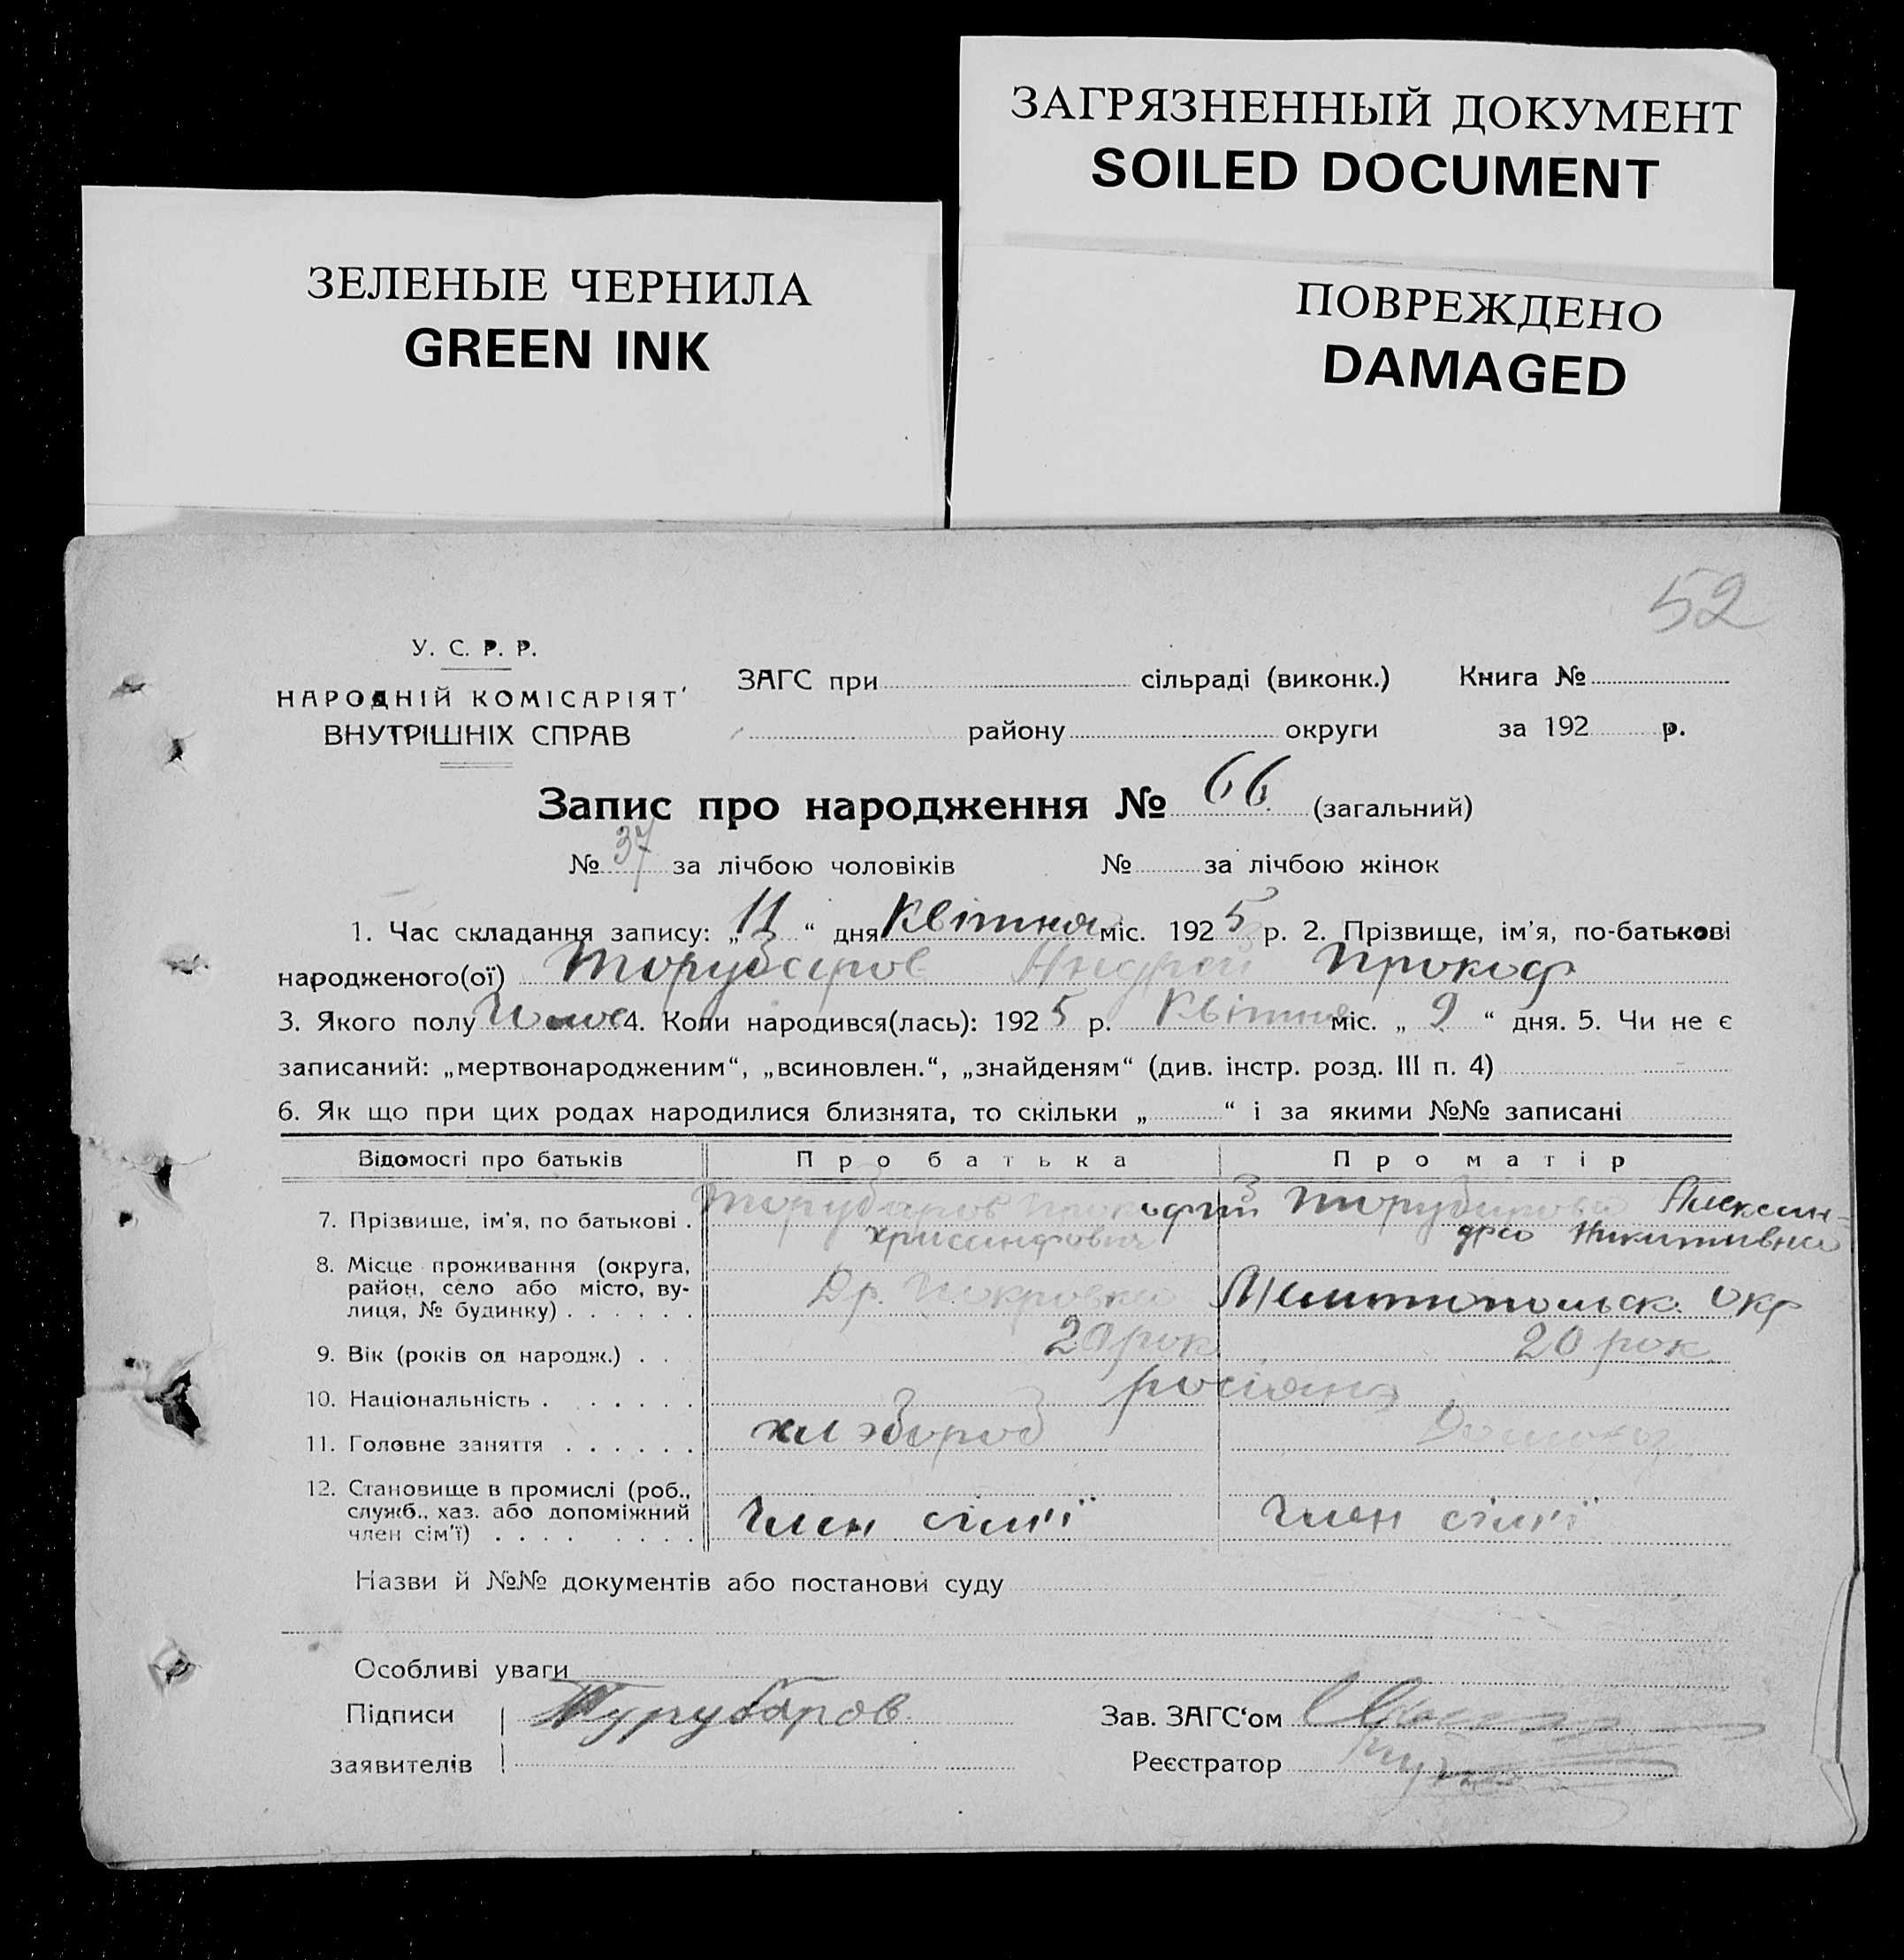 ЗАГРЯЗНЕННЫЙ ДОКУМЕНТ
SOILED DOCUMENT
ЗЕЛЕНЫЕ ЧЕРНИЛА
GREEN INK
ПОВРЕЖДЕНО
DAMAGED
52
У. С. Р. Р.
НАРОДНІЙ КОМІСАРІЯТ
ВНУТРІШНІХ СПРАВ
ЗАГС при сільраді (виконк.) Книга №
району округи за 192 р.
Запис про народження № 66 (загальний)
№ 37 за лічбою чоловіків № за лічбою жінок
1. Час складання запису: „11“ дня Квітня міс. 1925 р. 2. Прізвище, ім'я, по-батькові
народженого(ої) Торубаров Андрей Прокоф
3. Якого полу 4. Коли народився(лась): 1925 р. Квітня міс. „9“ дня. 5. Чи не є
записаний: „мертвонародженим“, „всиновлен.“, „знайденям“ (див. інстр. розд. III п. 4)
6. Як що при цих родах народилися близнята, то скільки „ “ і за якими №№ записані
Відомості про батьків Про батька Про матір
7. Прізвище, ім'я, по батькові . Торубаров Прокофий Торубарова Алексан-
хрисанфович дра Никитивна
8. Місце проживання (округа,
район, село або місто, ву-
лиця, № будинку) . . . . . . Др. Покровка Мелитопольск. Окр
9. Вік (років од народж.) . . 20 рок 20 рок
10. Національність . . . . . . росіянэ
11. Головне заняття . . . . . . хлэбороб
12. Становище в промислі (роб.,
служб., хаз. або допоміжний
член сім'ї) . . . . . . . . Член сімі'ї Член сімі'ї
Назви й №№ документів або постанови суду
Особливі уваги
Підписи Турубаров Зав. ЗАГС‘ом
заявителів Реєстратор